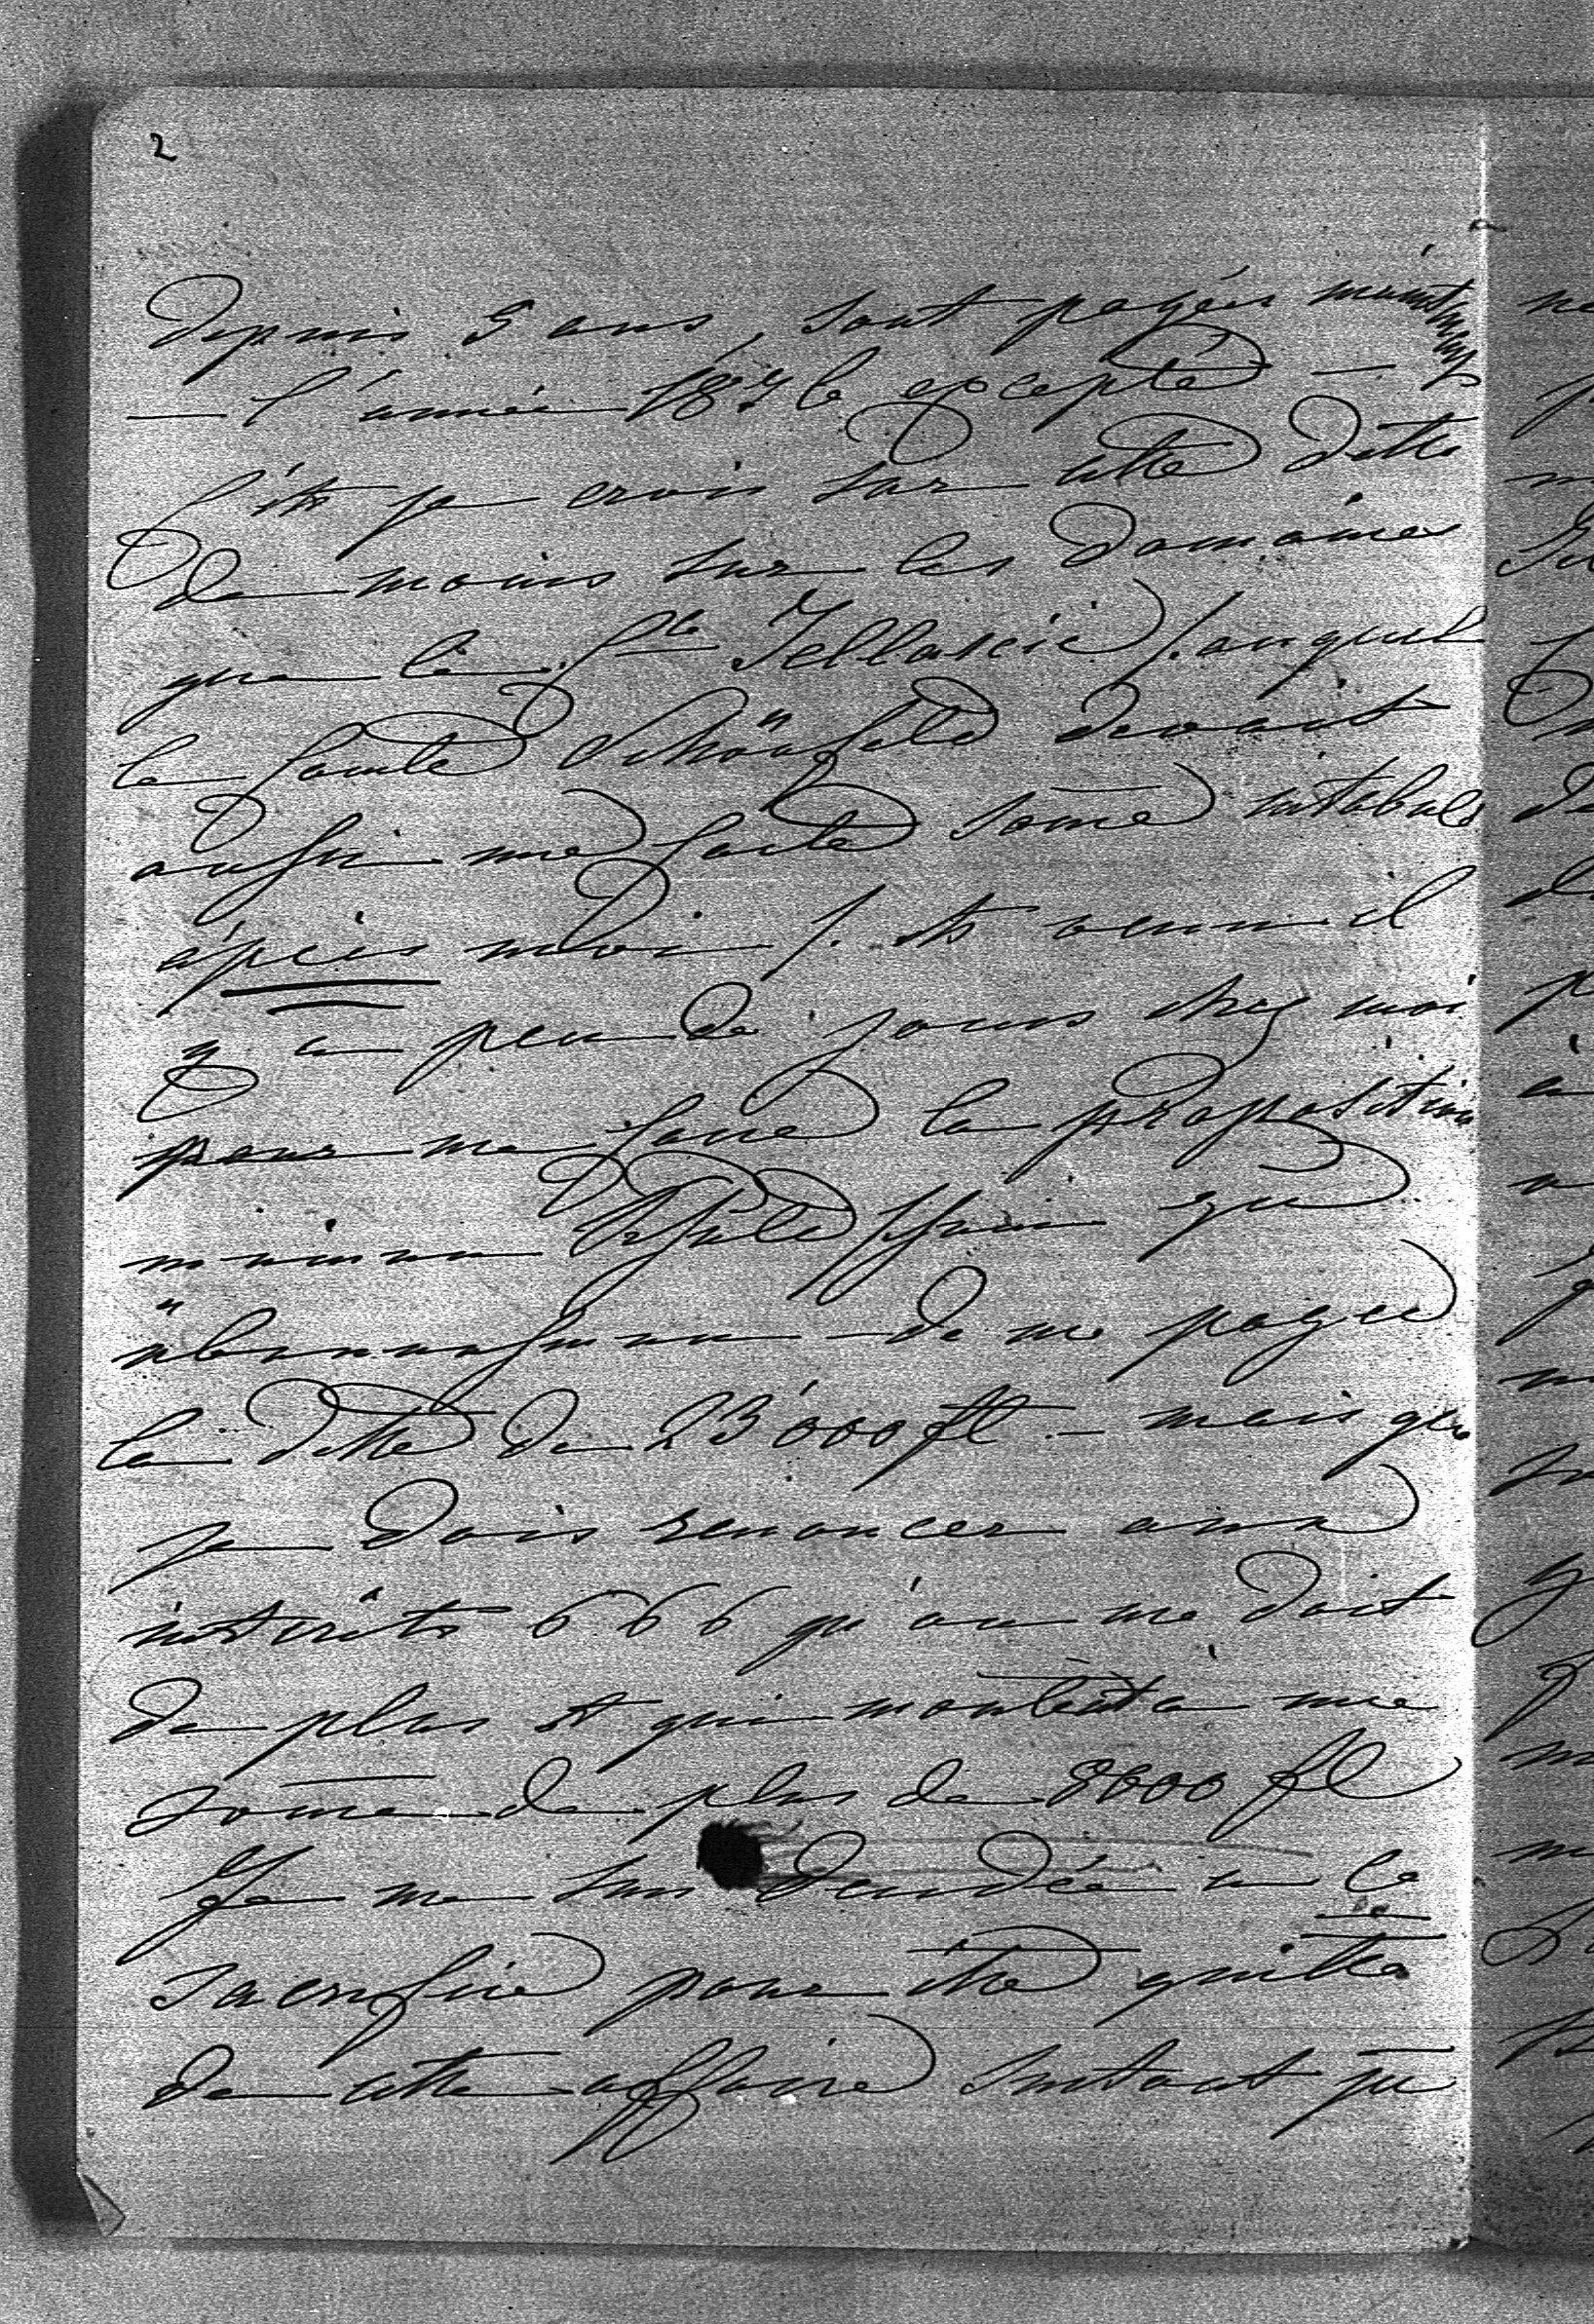 2
depuis 5 ans, sont payées maintenant
— l'année 187 excepté —
C'était je crois sur cette dette
de moins sur les domaines
que le Cte Jellacic /. auquel
le Comte Schönfeld devait
aussi une forte some intabulé
après moi ./ est venu il
y a peu de jours chez moi
pour me faire la proposition
meinen zu
übernehmen — de me payer
la dette de 23'000 fl — mais que
je dois renoncer aux
intérêts 666 qu'on me doit
de plus et qui montent à une
some de plus de 8600 fl
Je me suis décidée à ce
sacrifice pour être quitte
de cette affaire surtout